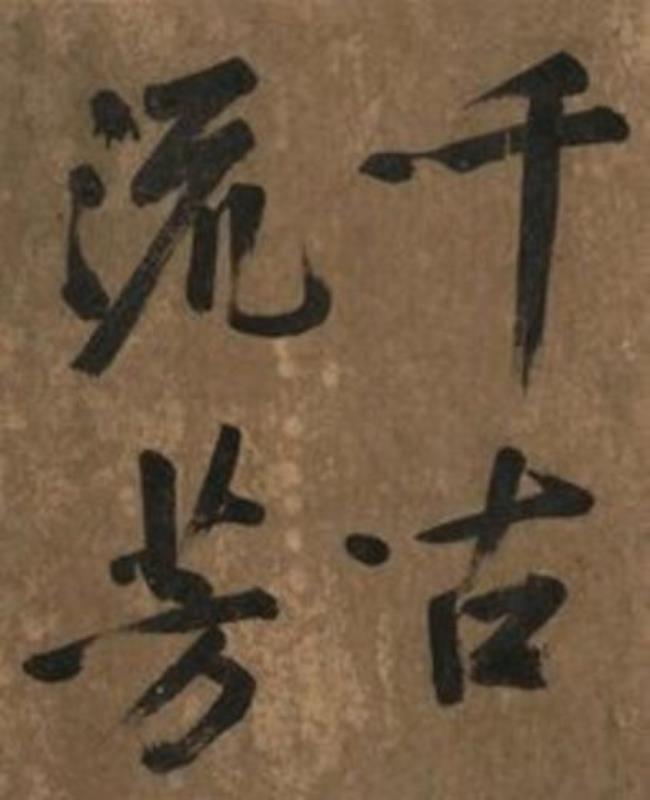 千古
流芳